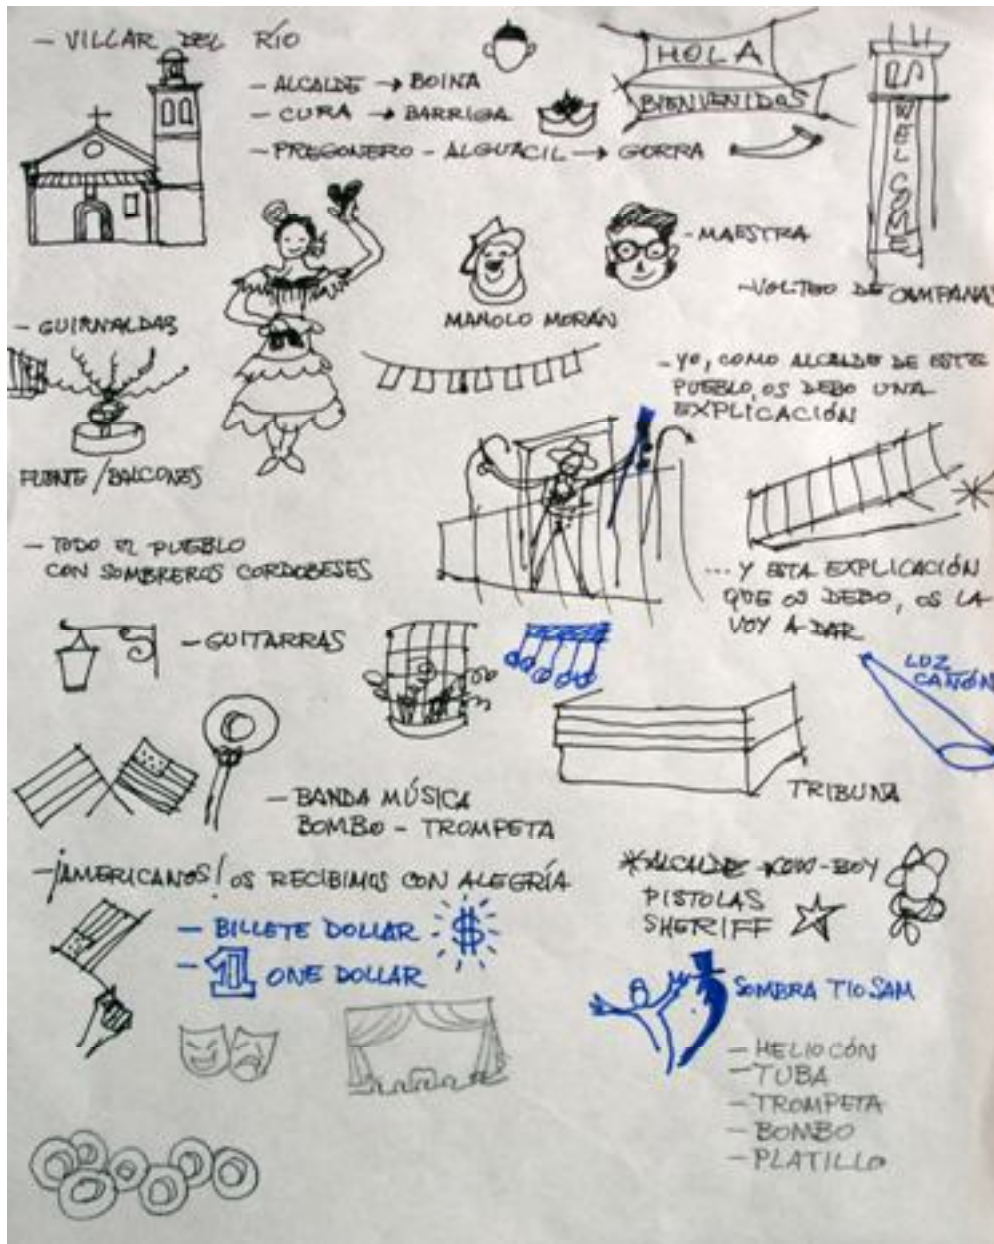 - VILLAR DEL RÍO
- ALCALDE → BOINA
- CURA → BARRIGA
- PREGONERO - ALGUACIL → GORRA
HOLA
BIENVENIDOS
US
WELCOME
- MAESTRA
MANOLO MORÁN
- VOLTEO DE CAMPANAS
- GUIRNALDAS
FUENTE / BALCONES
- YO, COMO ALCALDE DE ESTE
PUEBLO, OS DEBO UNA
EXPLICACIÓN
- TODO EL PUEBLO
CON SOMBREROS CORDOBESES
... Y ESTA EXPLICACIÓN
QUE OS DEBO, OS LA
VOY A DAR
- GUITARRAS
LUZ
CAÑÓN
TRIBUNA
- BANDA MÚSICA
BOMBO - TROMPETA
- ¡AMERICANOS! OS RECIBIMOS CON ALEGRÍA
* ALCALDE KOW-BOY
PISTOLAS
SHERIFF
- BILLETE DOLLAR $
- 1 ONE DOLLAR
SOMBRA TIO SAM
- HELIOCÓN
- TUBA
- TROMPETA
- BOMBO
- PLATILLO